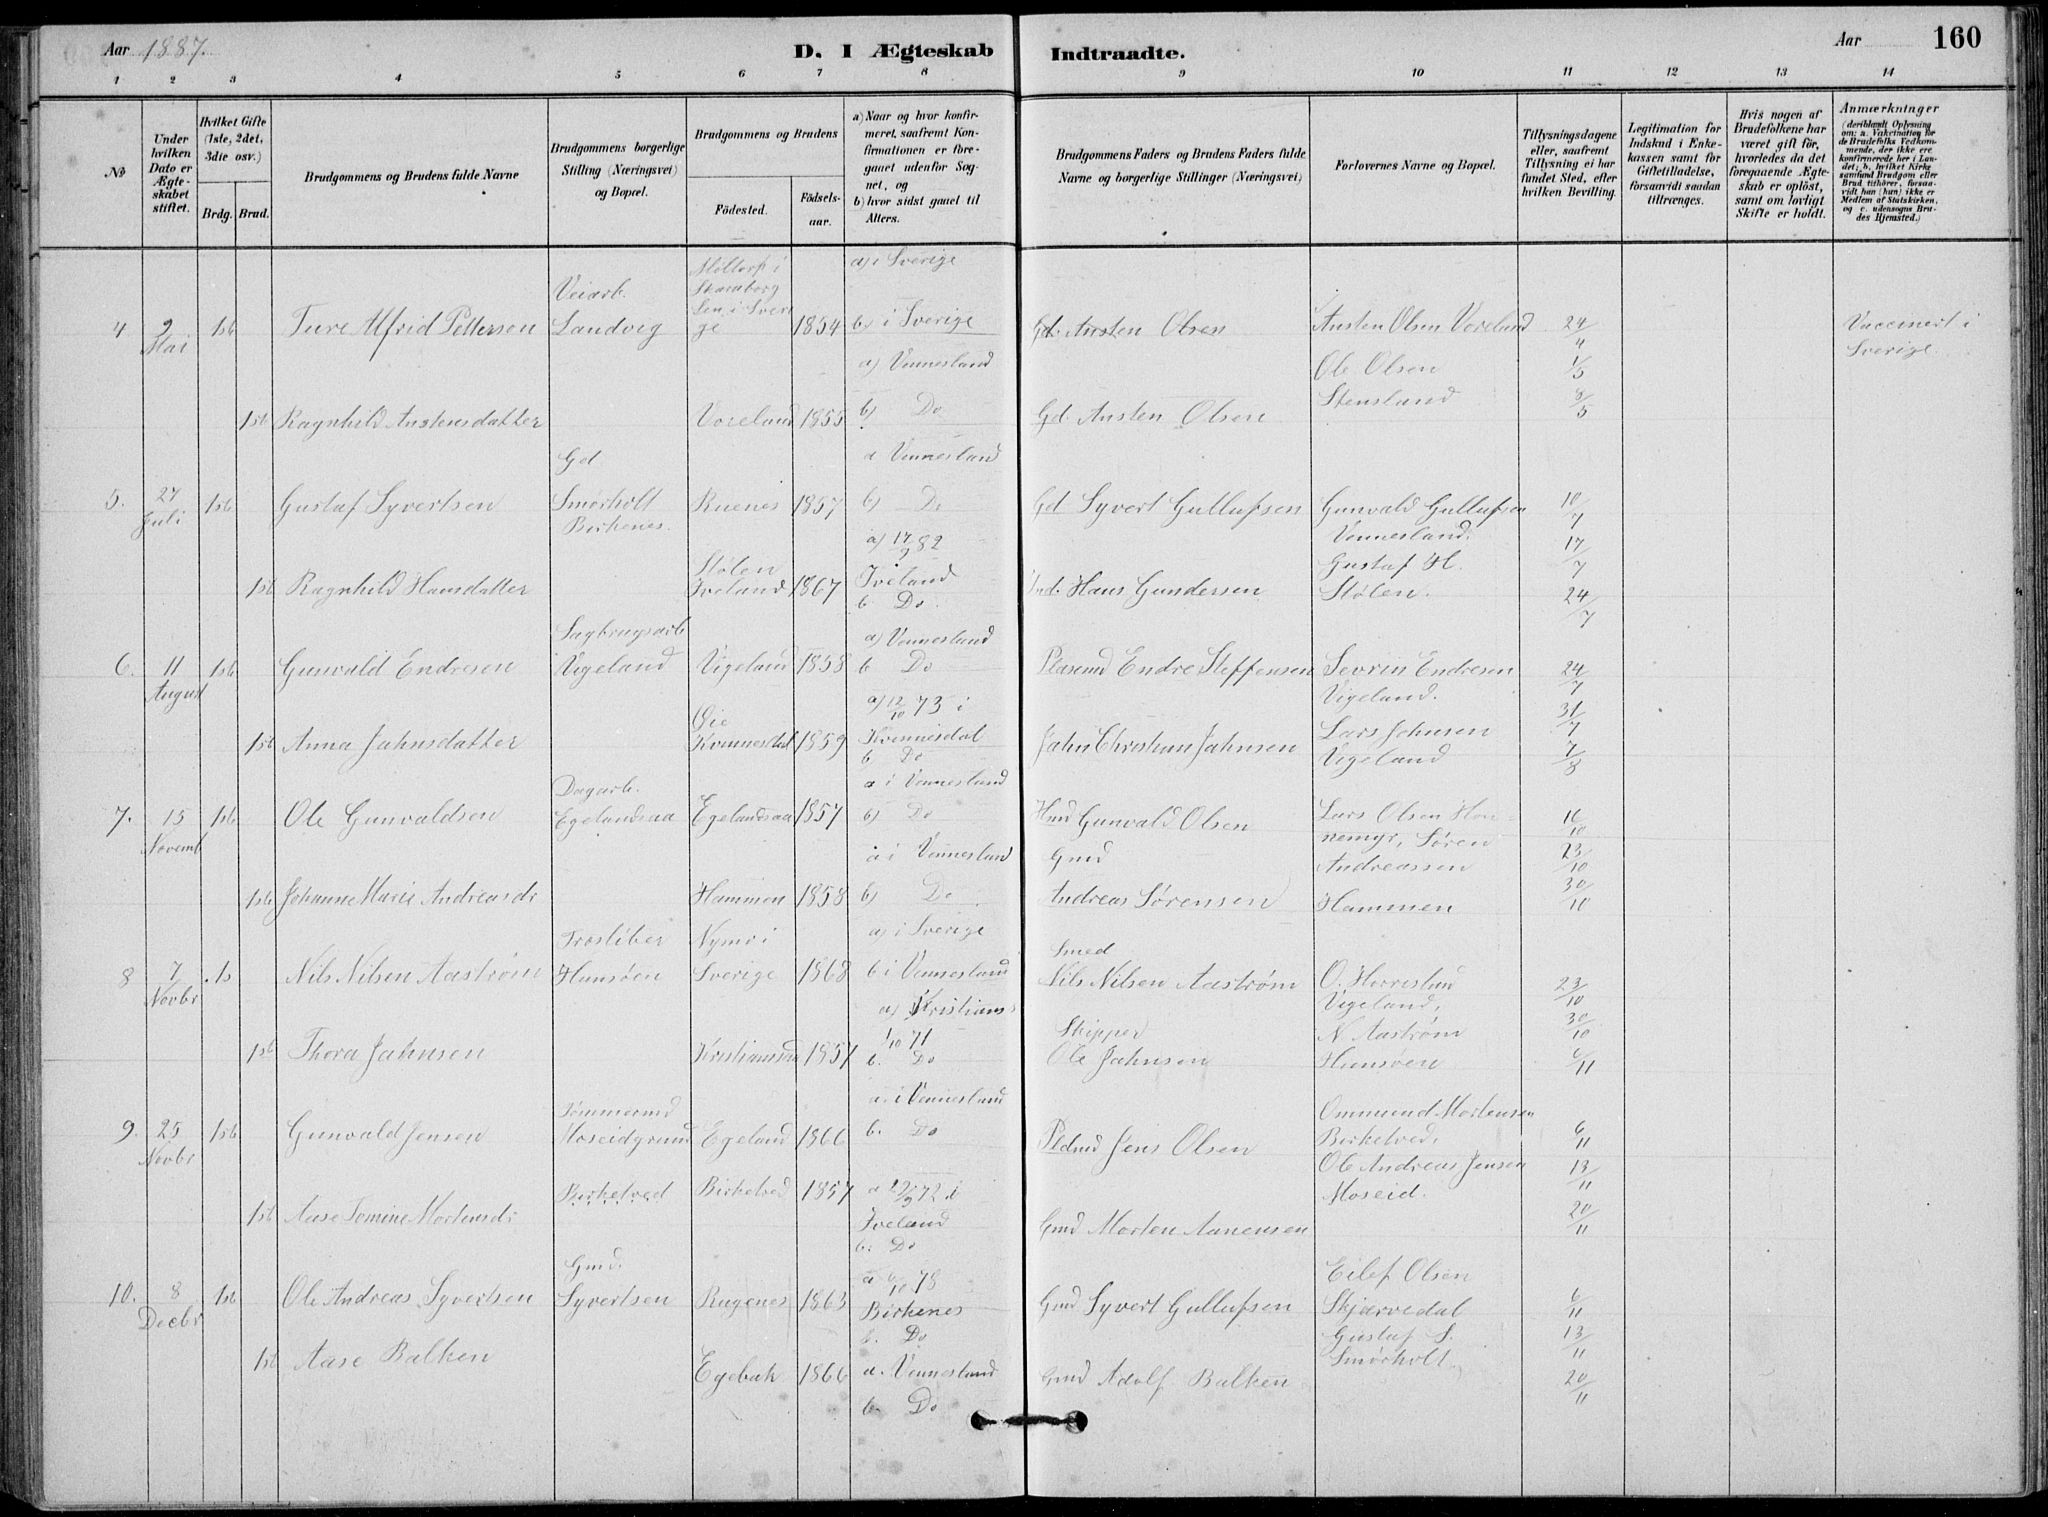 Aar 1887.
D. I Ægteskab Indtraadte.
Aar 160
1 2 3 4 5 6 7 8 9 10 11 12 13 14
№
Under hvilken Dato er Ægteskabet stiftet.
Hvilket Gifte (1ste, 2det, 3die osv.)
Brdg. Brud.
Brudgommens og Brudens fulde Navne
Brudgommens borgerlige Stilling (Næringsvei) og Bopæl.
Brudgommens og Brudens
Fødested.
Fødselsaar.
a) Naar og hvor konfirmeret, saafremt Konfirmationen er foregaaet udenfor Sognet, og
b) hvor sidst gaaet til Alters.
Brudgommens Faders og Brudens Faders fulde Navne og borgerlige Stillinger (Næringsvei)
Forlovernes Navne og Bopæl.
Tillysningsdagene eller, saafremt Tillysning ei har fundet Sted, efter hvilken Bevilling.
Legitimation for Indskud i Enkekassen samt for Giftetilladelse, forsaavidt saadan tiltrænges.
Hvis nogen af Brudefolkene har været gift før, hvorledes da det foregaaende Ægteskab er opløst, samt om lovligt Skifte er holdt.
Anmærkninger (deriblandt Oplysning om: a. Vakcination for de Brudefolks Vedkommende, der ikke ere konfirmerede her i Landet; b. hvilket Kirkesamfund Brudgom eller Brud tilhører, forsaavidt han (hun) ikke er Medlem af Statskirken, og c. udensogns Brudes Hjemsted.)
4 9 Mai 1ste Ture Alfrid Pettersen
Veiarb. Landvig
Skaraborg Len i Sverige 1854
a) i Sverige
b) i Sverige
Gd. Austen Olsen
Austen Olsen Voreland
Ole Olsen Stensland
24/4 1/5 8/5
Vaccinert i Sverige.
1ste Ragnhild Austensdatter
Voreland 1855
a) Vennesland
b) Do
Gd. Austen Olsen
5. 27 Juli 1ste Gustaf Syvertsen
Gd Smørholt Birkenes.
Ruenes 1857
a Vennesland
b) Do
Gd Syvert Gullufsen
Gunvald Gullufsen Vennesland.
Gustaf H. Stølen.
10/7 17/7 24/7
1ste Ragnhild Hansdatter
Stølen Iveland 1867
a) 17/9 82 Iveland
b. Do.
Hans Gundersen
6. 11 August 1ste Gunvald Endresen
Sagbrugsarb Vigeland
Vigeland 1858
a) Vennesland
b Do
Endre Steffensen
Sevrin Endresen Vigeland.
Lars Johnsen Vigeland
24/7 31/7 7/8
1ste Anna Jahnsdatter
Øie 1859
a) 12/10 73 i Kvinnesdal
b Do
Jahn Christian Jahnsen
7. 15 Novemb 1ste Ole Gunvaldsen
Dagarb. Egelandsaa
Egelandsaa 1857
a i Vennesland
b) Do
Hmd Gunvald Olsen
Lars Olsen Honnemyr, Søren Andreassen Hammen
16/10 23/10 30/10
1ste Johanne Marie Andreasdr
Hammen 1858
a i Vennesland
b) Do
Gmd Andreas Sørensen
8 7 Novbr 1s Nils Nilsen Aastrøm
Træsliber Hunsøen
Sverige 1868
a) i Sverige
b i Vennesland
Smed Nils Nilsen Aastrøm
Vigeland,
N Aastrøm Hunsøen
23/10 30/10 6/11
1ste Thora Jahnsen
Kristianssa 1857
a) Kristians 1/10 71
b. Do
Skipper Ole Jahnsen
9. 25 Novbr 1ste Gunvald Jensen
Tømmermd Moseidgrund
Egeland 1866
a. i Vennesland
b. Do
Jens Olsen
Ommund Mortensen Birketved,
Ole Andreas Jensen Moseid.
6/11 13/11 20/11
1ste Aase Tomine Mortensdr
Birketved
Birketved 1857
a 29/9 72 i Iveland
b. Do
Gmd Morten Aanensen
10. 8 Decbr 1ste Ole Andreas Syvertsen
Gmd. Syvertsen
Rugenes 1863
a 6/10 78 Birkenes
b. Do
Gmd Syvert Gullufsen
Eilef Olsen Skjærvedal
Gustaf S. Smørholt.
6/11 13/11 20/11
1st Aase Balken
Egebak 1866
a. Vennesland
b. Do
Gmd Adolf Balken